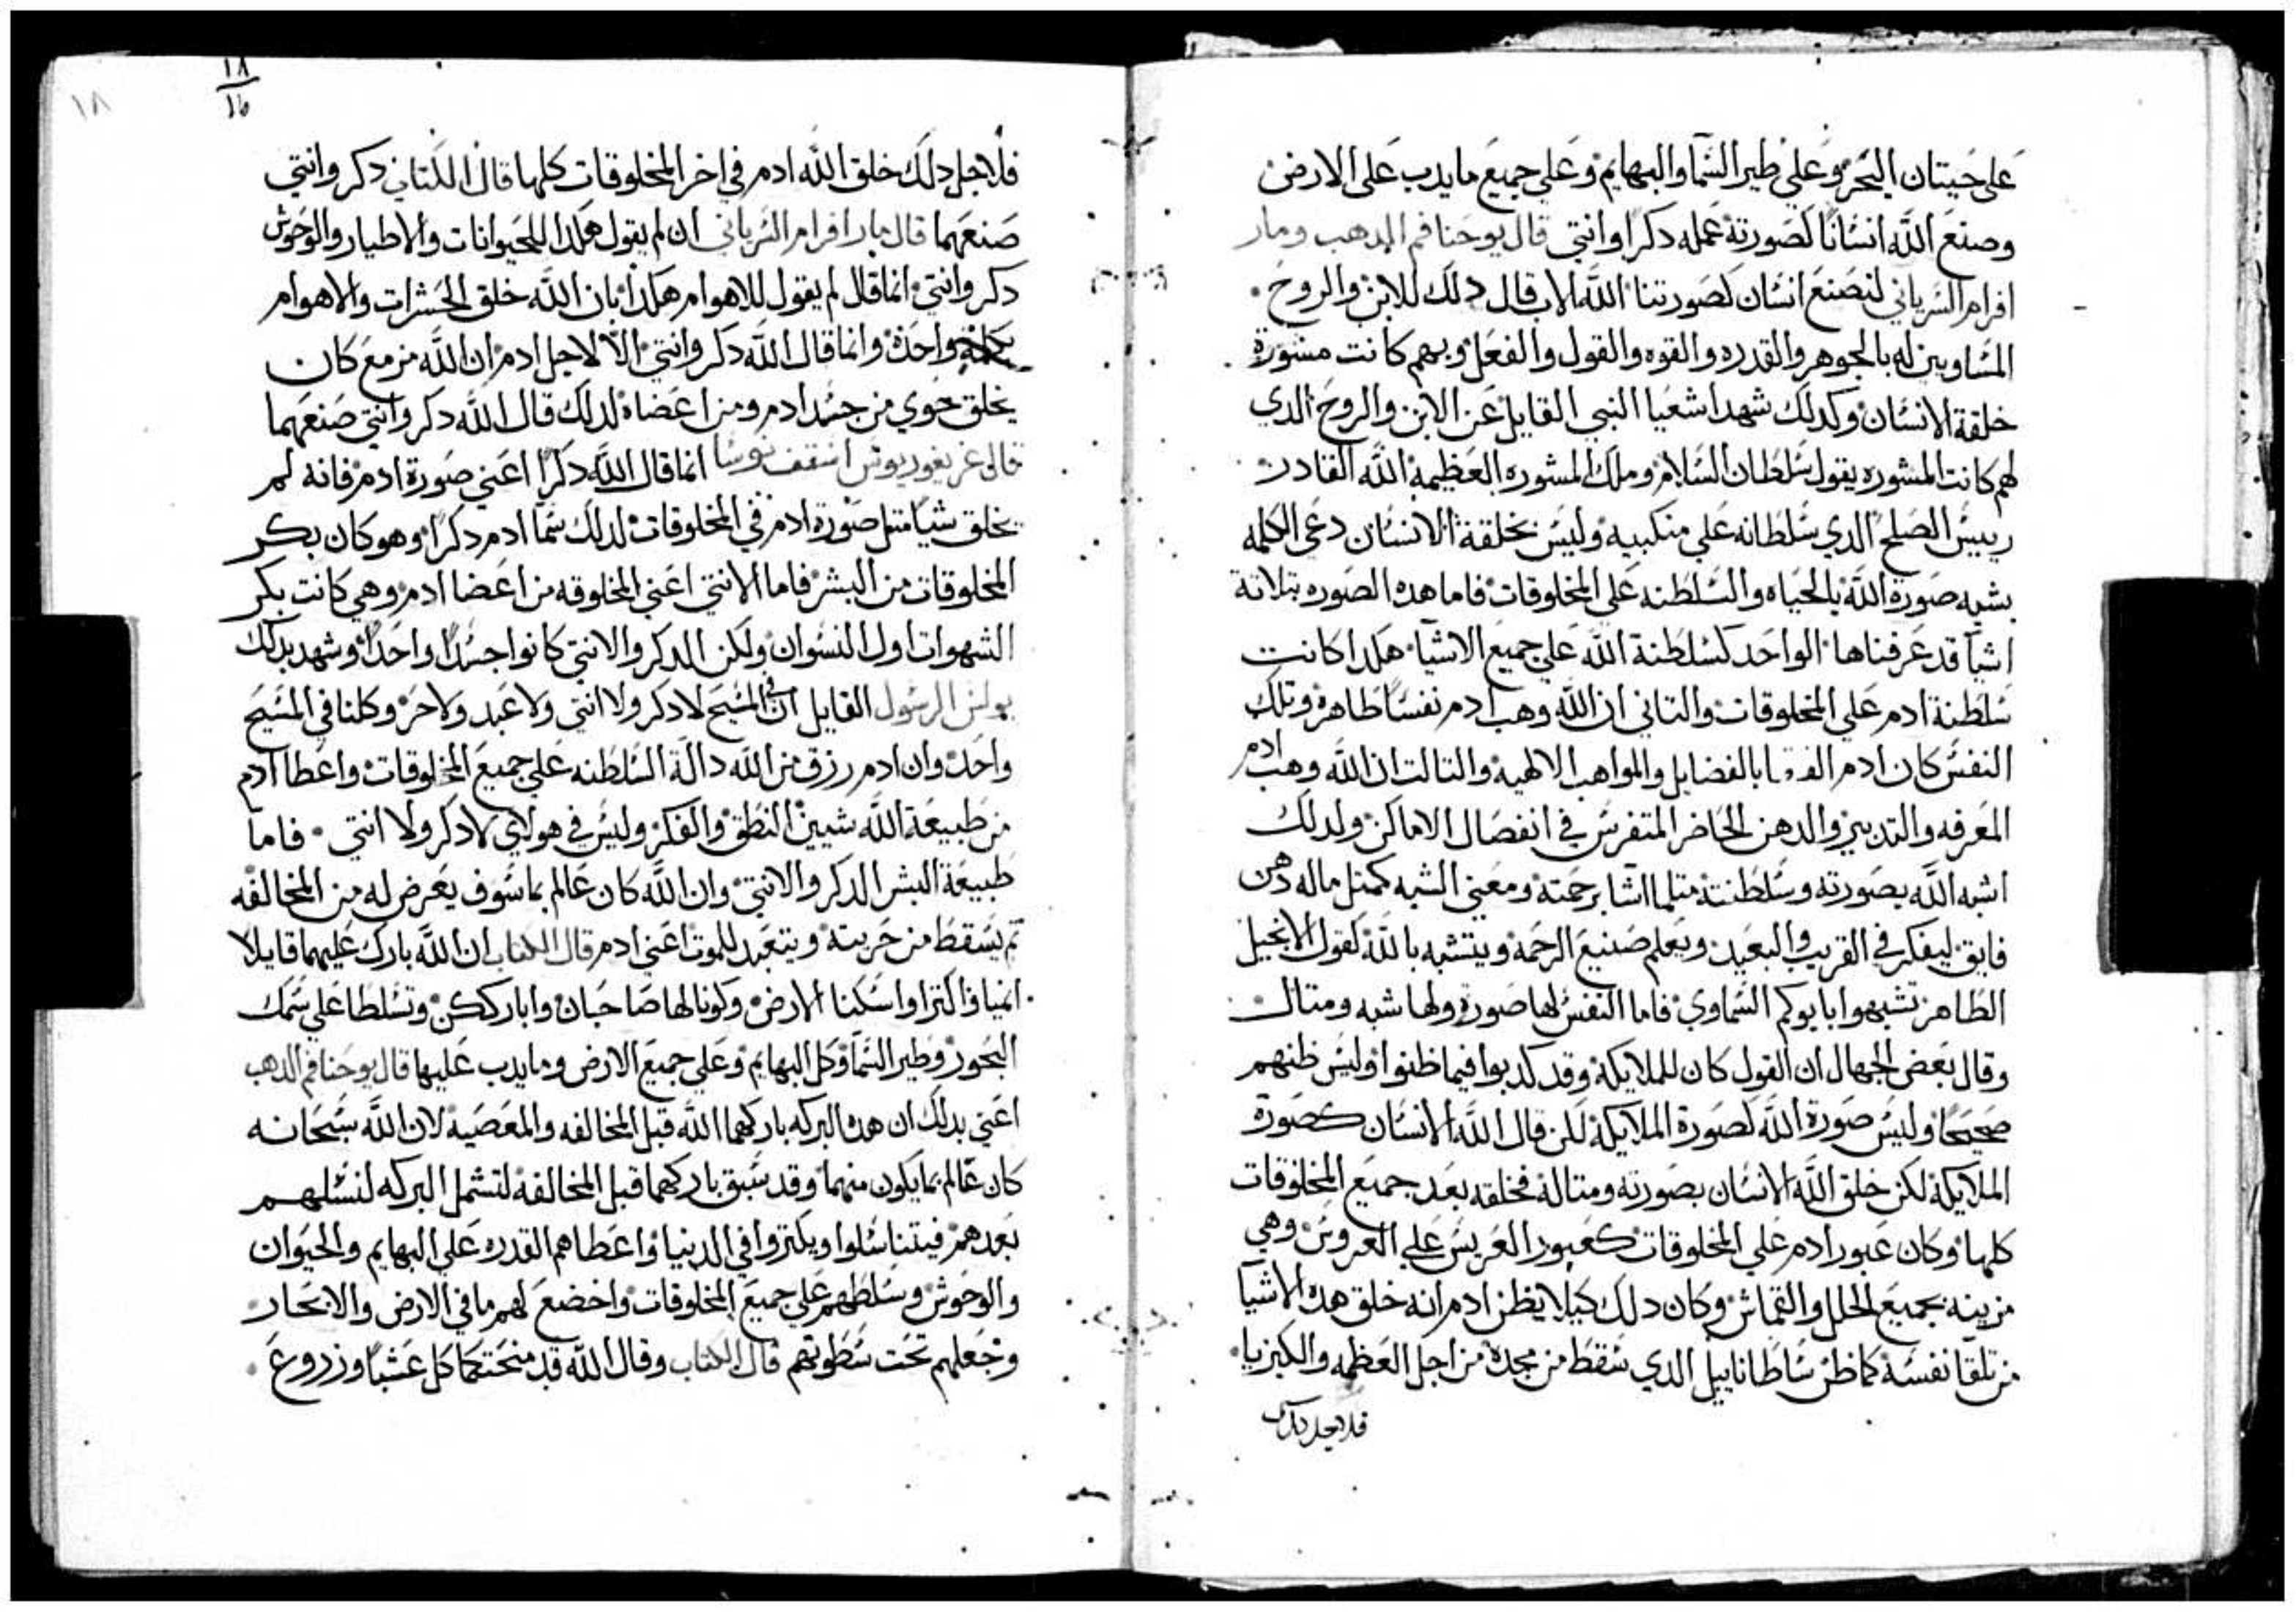 على حيتان البحر وعلى طير السما والبهايم وعلى جميع ما يدب على الارض
وصنع الله انسانًا كصورته عمله دكرا وانتي قال يوحنا فم الدهب ومار
افرام السرياني لنصنع انسان كصورتنا الله الاب قال دلك للابن والروح
المساويين له بالجوهر والقدره والقوه والقول والفعل وبهم كانت مشورة
خلقة الانسان وكدلك شهد اشعيا النبي القايل عن الابن والروح الدي
لهم كانت المشوره يقول سلطان السلام وملك المشوره العظيمه الله القادر
رييس الصلح الدي سلطانه على منكبيه وليس بخلقة الانسان دعى الكلمه
بشبه صورة الله بالحياه والسلطنه على المخلوقات فاما هده الصوره بتلاتة
اشيا قد عرفناها الواحد كسلطنة الله على جميع الاشيا هكدا كانت
سلطنة ادم على المخلوقات والتاني ان الله وهب ادم نفسًا طاهره وتلك
النفس كان ادم بالفضايل والمواهب الالهيه والتالت ان الله وهب ادم
المعرفه والتدبير والدهن الحاضر المتفرس في انفصال الاماكن ولدلك
اشبه الله بصورته وسلطنته متلما اشا برحمته ومعنى الشبه كمتل ماله دهن
فايق ليفكر في القريب والبعيد ويعلم صنيع الرحمه ويتشبه بالله كقول الانجيل
الطاهر تشبهوا بابوكم السماوي فاما النفس لها صوره ولها شبه ومتال
وقال بعض الجهال ان القول كان للملايكة وقد كدبوا فيما ظنوا وليس ظنهم
صحيحًا وليس صورة الله كصورة الملايكة لكن قال الله الانسان كصورة
الملايكة لكن خلق الله الانسان بصورته ومتاله فخلقه بعد جميع المخلوقات
كلها وكان عبور ادم على المخلوقات كعبور العريس على العروس وهي
مزينه بجميع الحلل والقماش وكان دلك كيلا يظن ادم انه خلق هده الاشيا
من تلقا نفسه كما ظن ساطانابيل الدي سقط من مجده من اجل العظمه والكبريا
فلاجل دلك
١٨
١٨
فلاجل دلك خلق الله ادم في اخر المخلوقات كلها قال الكتاب دكر وانتي
صنعهما قال مار افرام السرياني ان لم يقول هكدا للحيوانات والاطيار والوحوش
دكر وانتي انما قال لم يقول للاهوام هكدا بان الله خلق الحشرات والاهوام
بكلمة واحدة وانما قال الله دكر وانتي الا لاجل ادم ان الله مزمع كان
يخلق حوي من جسد ادم ومن اعضاه لدلك قال الله دكر وانتي صنعهما
قال غريغوريوس اسقف نوسا انما قال الله دكرًا اعني صورة ادم فانه لم
يخلق شيًا متل صورة ادم في المخلوقات لدلك سما ادم دكرًا وهو كان بكر
المخلوقات من البشر فاما الانتي اعني المخلوقه من اعضا ادم وهي كانت بكر
الشهوات اول النسوان ولكن الدكر والانتي كانوا جسدًا واحدًا وشهد بدلك
بولس الرسول القايل ان في المسيح لا دكر ولا انتي ولا عبد ولا حر وكلنا في المسيح
واحد وان ادم رزق من الله دالة السلطنه على جميع المخلوقات واعطا ادم
من طبيعة الله شيين النطق والفكر وليس في هولاي لا دكر ولا انتي فاما
طبيعة البشر الدكر والانتي وان الله كان عالم بما سوف يعرض له من المخالفه
تم يسقط من حريته ويتعبد للموت اعني ادم قال الكتاب ان الله بارك عليهما قايلا
انميا واكترا واسكنا الارض وكونا لها صاحبان واباركن وتسلطا على سمك
البحور وطير السما وكل البهايم وعلى جميع الارض وما يدب عليها قال يوحنا فم الدهب
اعني بدلك ان هده البركه باركهما الله قبل المخالفه والمعصيه لان الله سبحانه
كان عالم بما يكون منهما وقد سبق باركهما قبل المخالفه لتشمل البركه لنسلهم
بعدهم فيتناسلوا ويكتروا في الدنيا واعطاهم القدره على البهايم والحيوان
والوحوش وسلطهم على جميع المخلوقات واخضع لهم ما في الارض والابحار
وجعلهم تحت سطوتهم قال الكتاب وقال الله قد منحتكما كل عشبًا وزروع